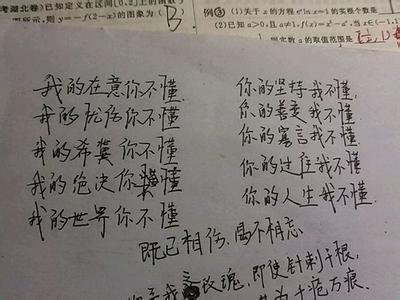 考湖北卷)已知定义在区间[0,2]上的函数y
图所示,则y=-f(2-x)的图象为( B
例③(1)关于x的方程eˣlnx=1的实根个数是
(2)已知a>0,且a≠1,f(x)=x²-aˣ,当x∈(-1,1
则实数a的取值范围是
我的在意你不懂
我的你不懂
我的希冀你不懂
我的绝决你懂
我的世界你不懂
你的坚持我不懂
你的善变我不懂
你的寡言我不懂
你的过往我不懂
你的人生我不懂
既已相伤,曷不相忘
玫瑰,即使针刺千根,
千疮万痕.